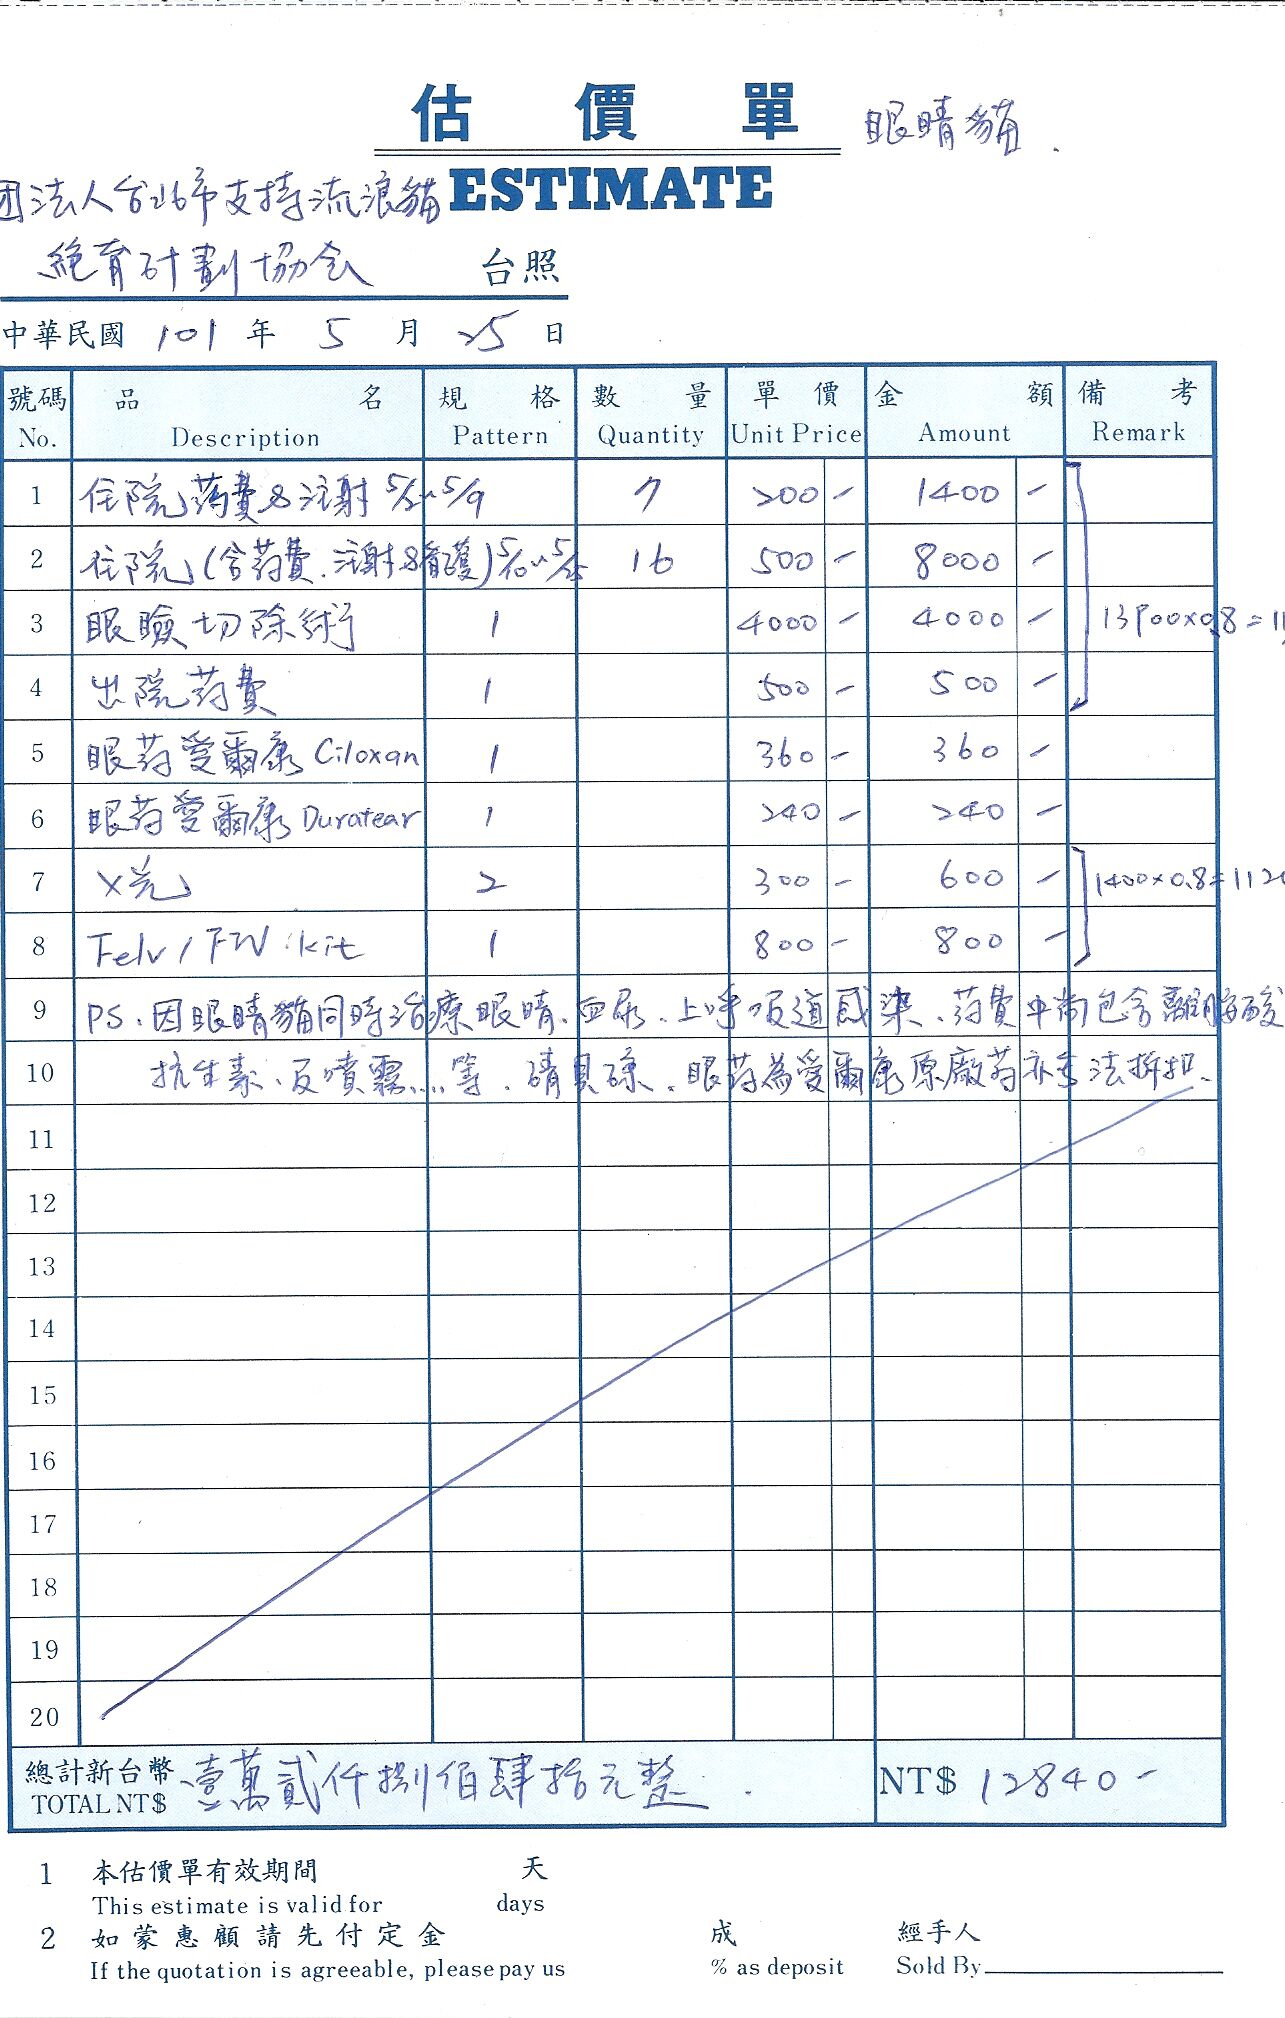 估價單 眼睛貓.
ESTIMATE
团法人台北市支持流浪貓
絕育計劃協会 台照
中華民國 101 年 5 月 25 日
號碼 品名 規格 數量 單價 金額 備考
No. Description Pattern Quantity Unit Price Amount Remark
1 住院药費&注射 5/3~5/9 7 200 - 1400 -
2 住院(含药費、注射&看護) 5/10~5/25 16 500 - 8000 -
3 眼瞼切除術 1 4000 - 4000 - 13900x0.8=11
4 出院药費 1 500 - 500 -
5 眼药愛爾康 Ciloxan 1 360 - 360 -
6 眼药愛爾康 Duratear 1 240 - 240 -
7 X光 2 300 - 600 - 1400x0.8=112
8 Felv/FIV kit 1 800 - 800 -
9 PS、因眼睛貓同時治療眼睛、血尿、上呼吸道感染、药費中尚包含離胺酸
10 抗生素、及噴霧……等、請見諒、眼药為愛爾康原廠药亦無法折扣、
11
12
13
14
15
16
17
18
19
20
總計新台幣 壹萬貳仟捌佰肆拾元整. NT$ 12840-
TOTAL NT$
1 本估價單有效期間 天
This estimate is valid for days
2 如蒙惠顧請先付定金 成 經手人
If the quotation is agreeable, please pay us % as deposit Sold By